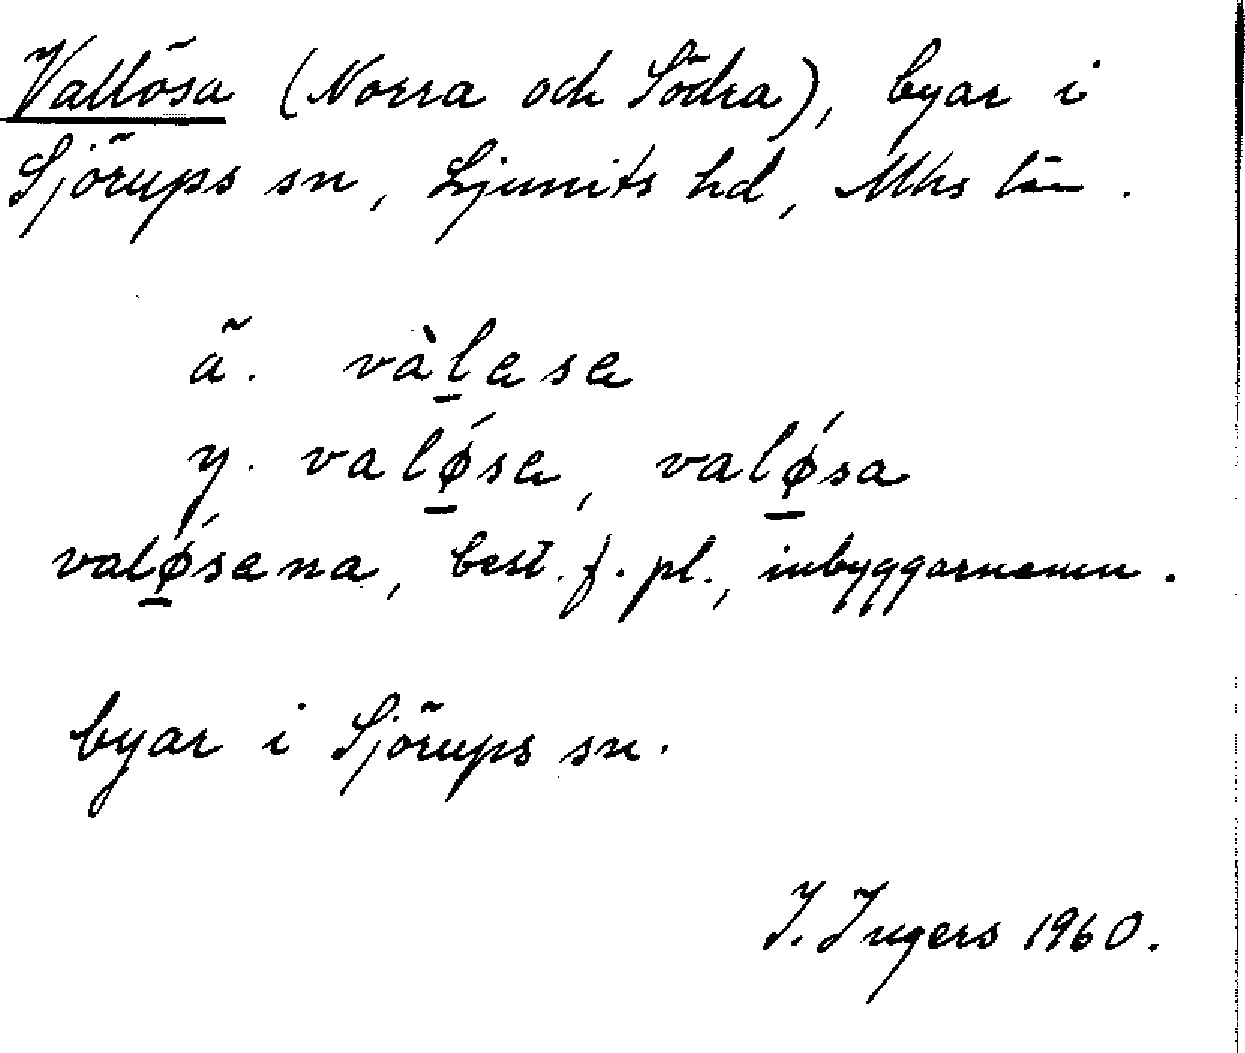 Vallösa (Norra och Södra), byar i
Sjörups sn, Ljunits hd, Mhs län.
ä. vàl̠asa
y. valǿ̠sa, valǿ̠sa
valǿ̠sana, best. f. pl., inbyggarnamn.
byar i Sjörups sn.
I. Ingers 1960.